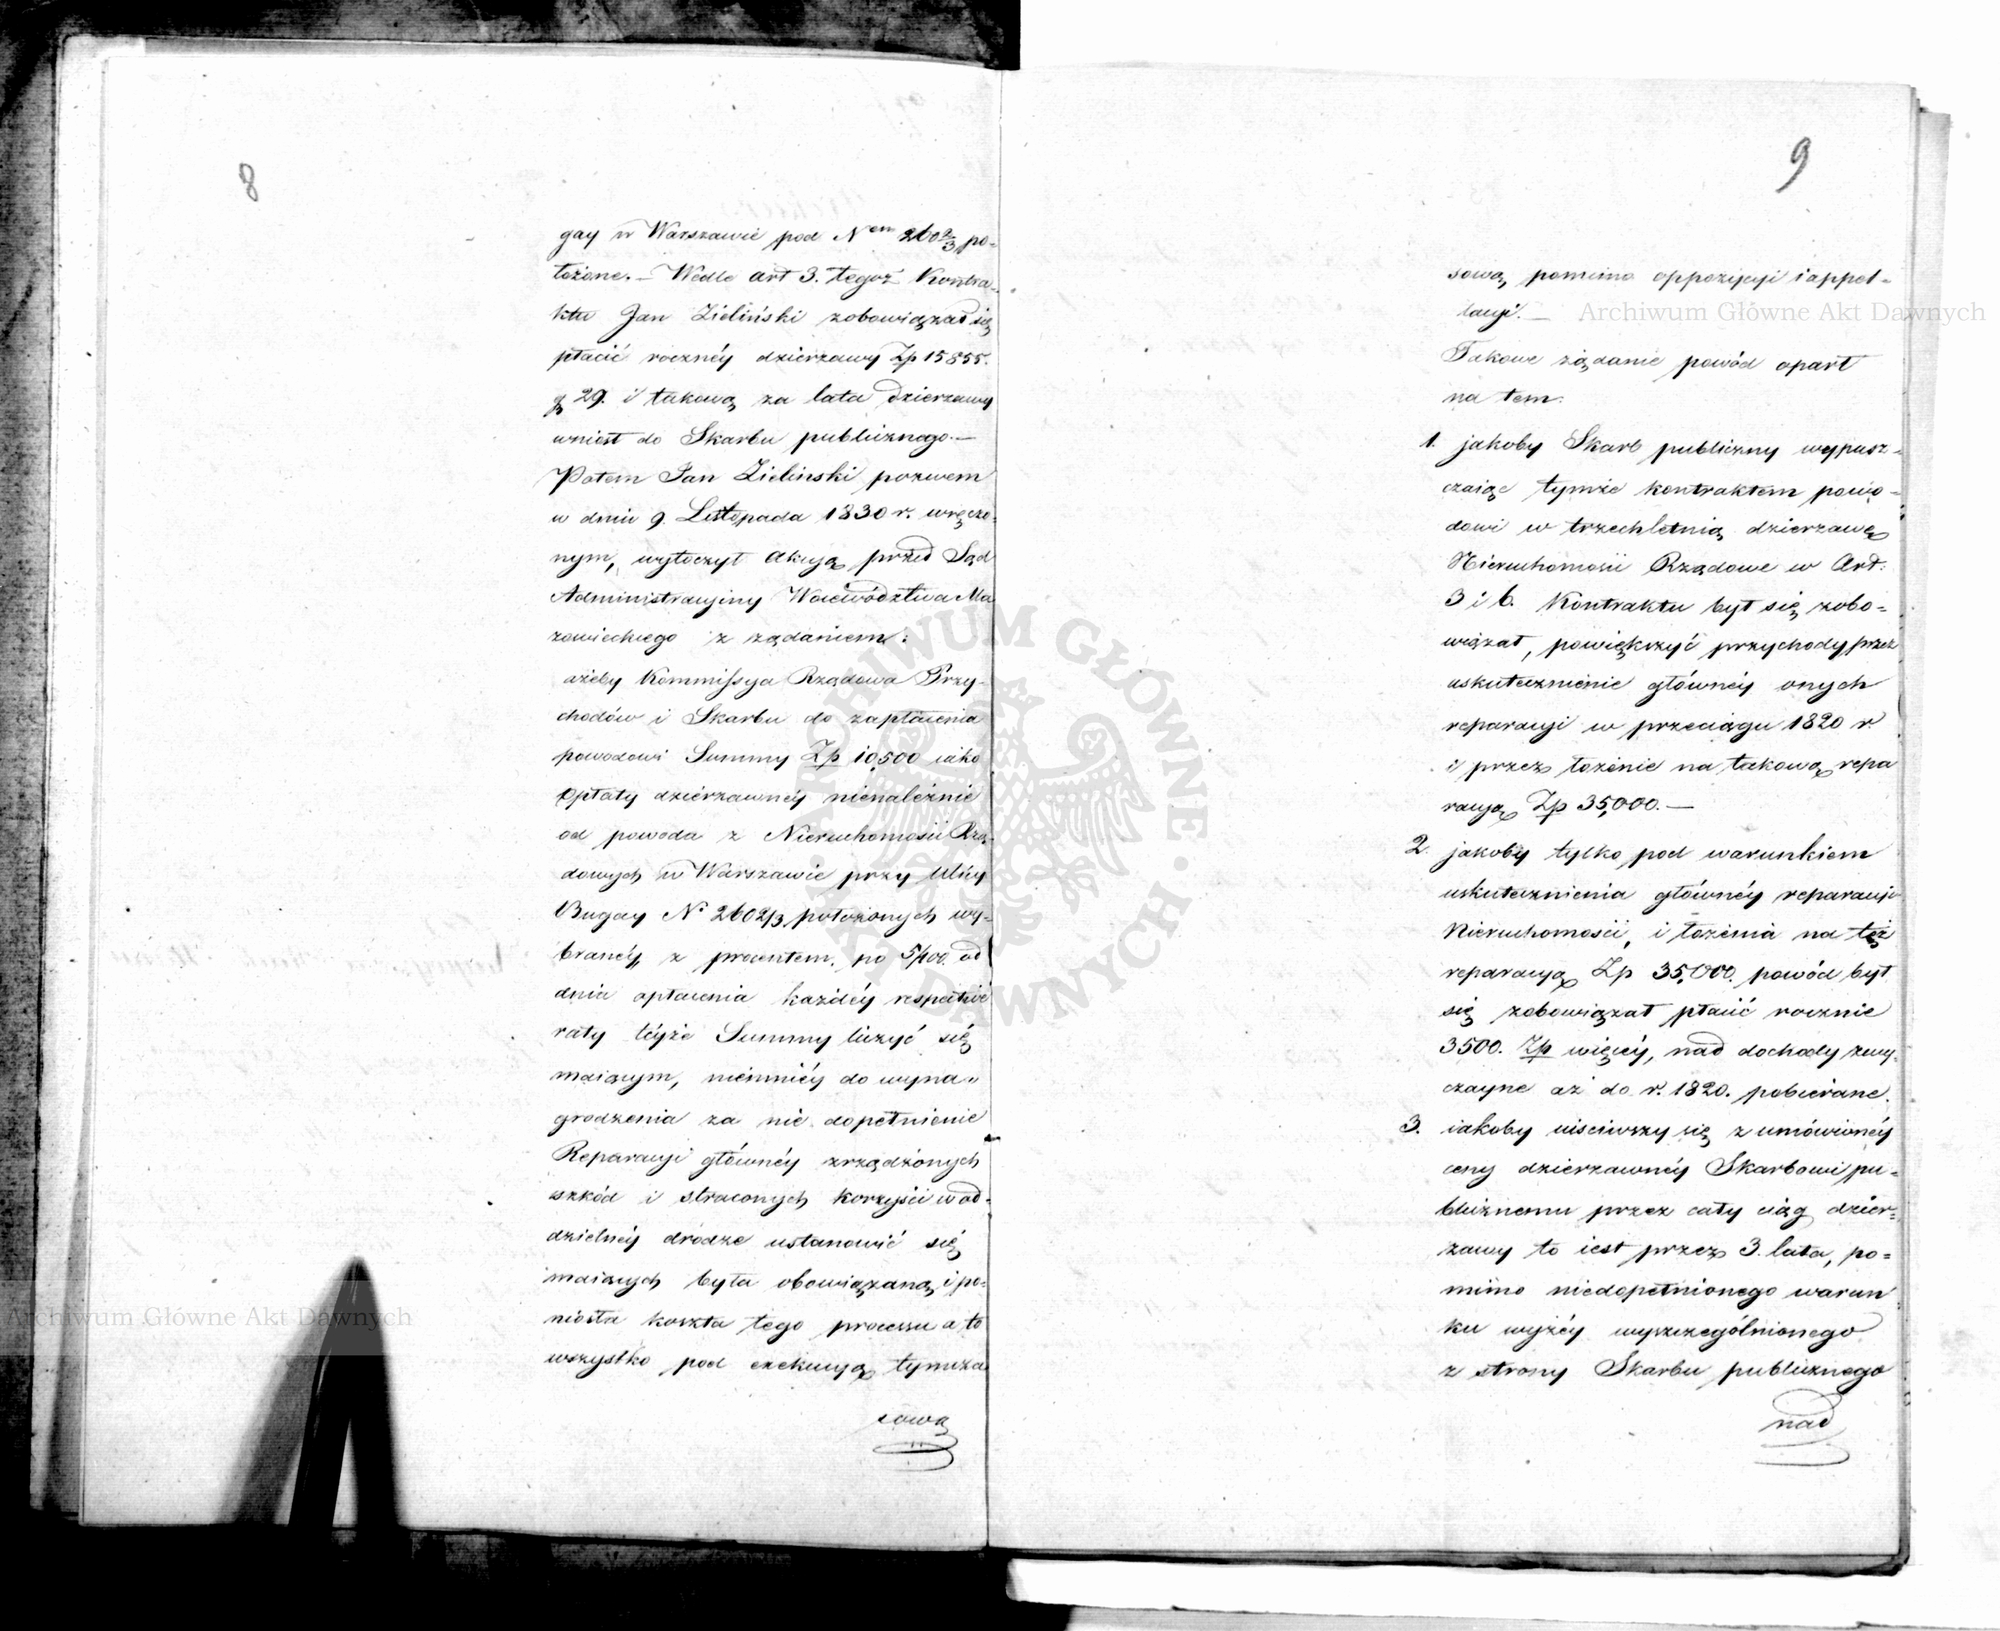 8
gay w Warszawie pod Nem 2602/3 po-
łożone. — Wedle art 3. tegoż Kontra-
ktu Jan Zieliński zobowiązał się
płacić rocznéy dzierzawy Zp 15855.
g 29. i takową za lata dzierzawy
wniósł do Skarbu publicznego. —
Potem Jan Zielinski pozwem
w dniu 9. Listopada 1830 r. wręczo-
nym, wytoczył akcyą przed Sąd
Administracyiny Woiewództwa Ma
zowieckiego z żądaniem:
ażeby Kommissya Rządowa Przy-
chodów i Skarbu do zapłacenia
powodowi Summy Zp 10,500 iako
Opłaty dzierzawnéy nienależnie
od powoda z Nieruchomości Rzą-
dowych w Warszawie przy Ulicy
Bugay No 2602/3 położonych wy-
branéy, z procentem po 5/100 od
dnia opłacenia każdéy respective
raty téyże Summy liczyć się
maiącym, niemniéy do wyna-
grodzenia za nie dopełnienie
Reparacyi głównéy zrządzonych
szkód i straconych korzyści w od-
dzielnéy drodze ustanowić się
maiących była obowiązaną, i po-
niosła koszta tego processu a to
wszystko pod exekucyą tymcza
sową
9
sową, pomimo oppozycyi i appel-
lacyi. —
Takowe żądanie powód oparł
na tem:
1. jakoby Skarb publiczny wypusz-
czaiąc tymże kontraktem powo-
dowi w trzechletnią dzierzawę
Nieruchomości Rządowe w Art:
3 i 6. Kontraktu był się zobo-
wiązał, powiększyć przychody przez
uskutecznienie głównéy onych
reparacyi w przeciągu 1820 r.
i przez łożenie na takową repa
racyą Zp 35,000. —
2. jakoby tylko pod warunkiem
uskutecznienia głównéy reparacyi
Nieruchomości, i łożenia na też
reparacyą Zp 35,000. powód był
się zobowiązał płacić rocznie
3500. Zp więcéy, nad dochody zwy-
czayne aż do r. 1820. pobierane.
3. iakoby uiściwszy się z umówionéy
ceny dzierzawnéy Skarbowi pu-
blicznemu przez cały ciąg dzier-
zawy to iest przez 3. lata, po-
mimo niedopełnionego warun
ku wyżéy wyszczególnionego
z strony Skarbu publicznego
nad
Archiwum Główne Akt Dawnych
Archiwum Główne Akt Dawnych
ARCHIWUM GŁÓWNE · AKT DAWNYCH ·